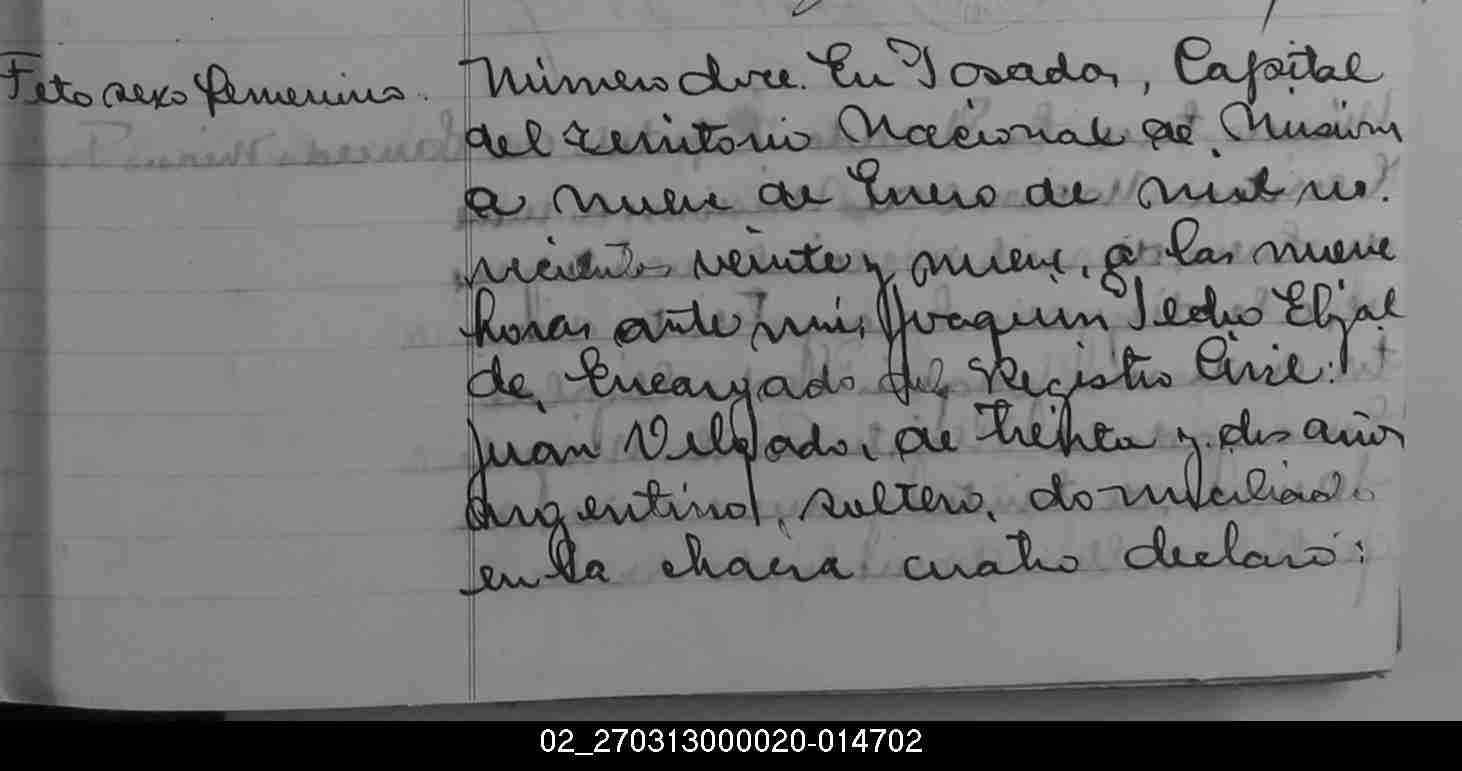 Feto sexo femenino.
Número doce. En Posadas, Capital
del territorio Nacional de Misiones
a nueve de Enero de mil no-
vecientos veinte y nueve, a las nueve
horas ante mi, Joaquin Pedro Elizal
de, Encargado del Registro Civil:
Juan Delgado, de treinta y dos años
argentino, soltero, domiciliado
en la chacra cuatro declaró:
02_270313000020-014702